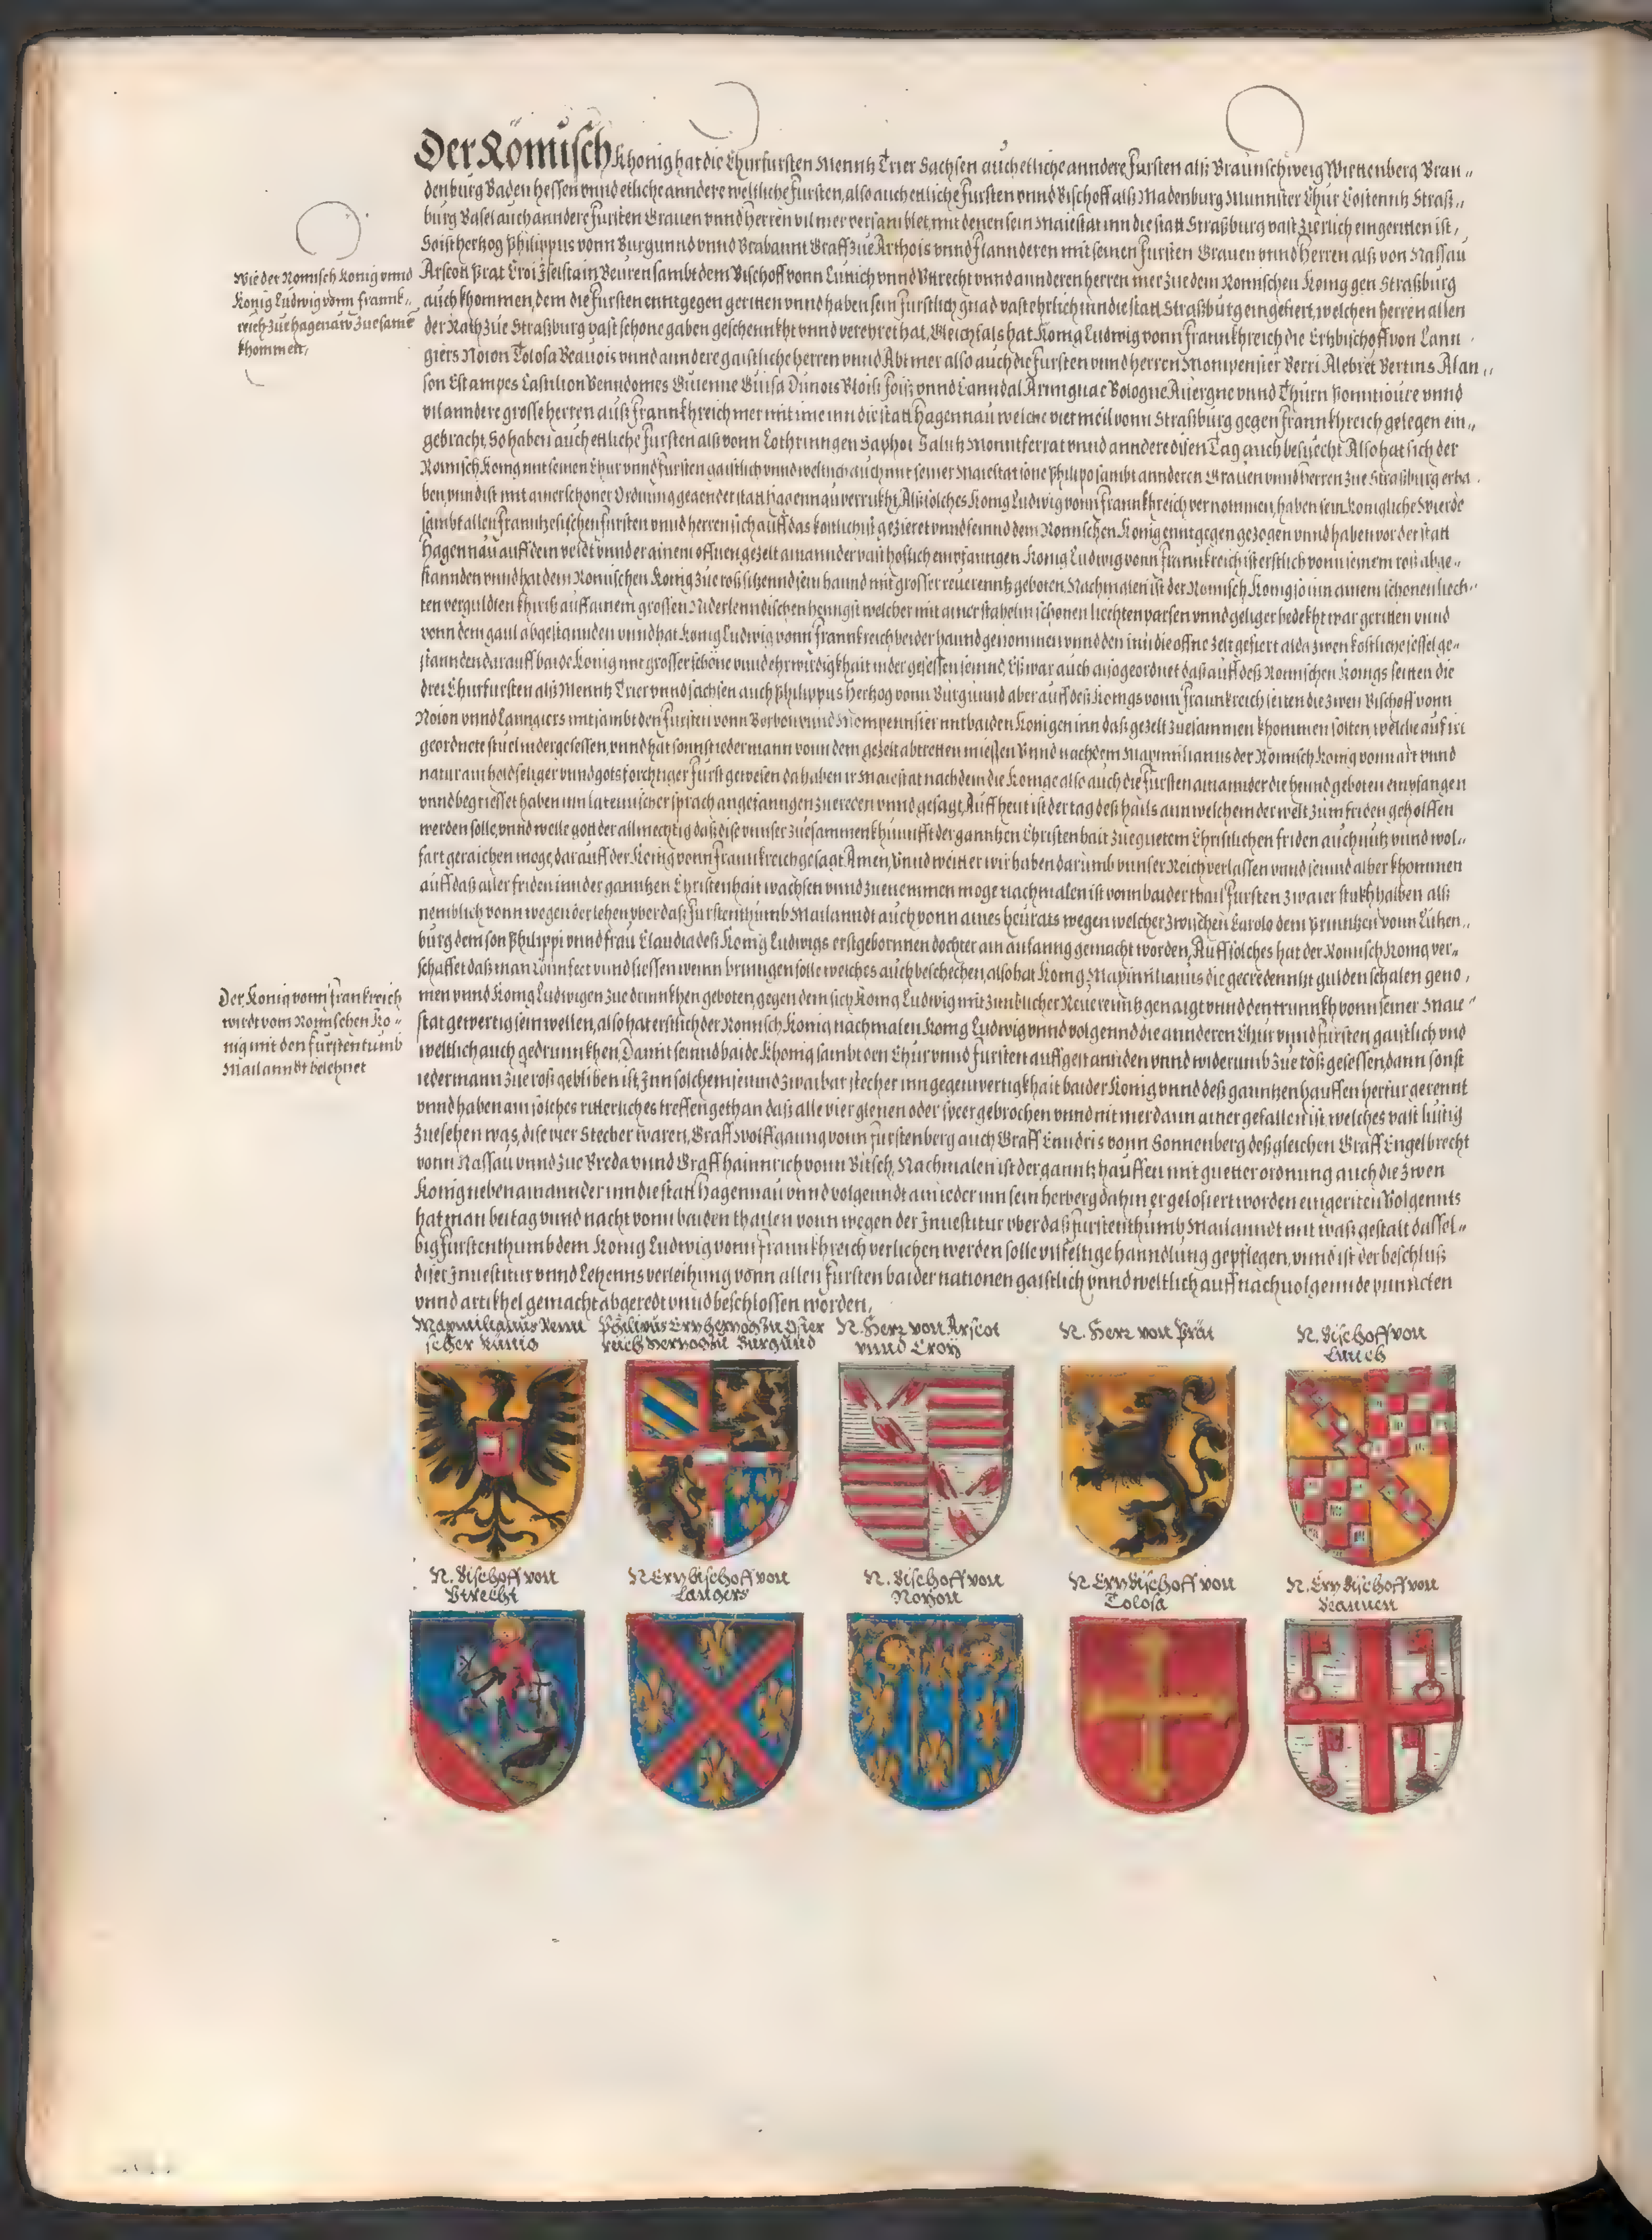 Der Römisch Khonig hat die Churfursten Menntz Trier Sachsen auch etliche anndere Fursten alß Braunschweig Wirttenberg Bran„
denburg Baden Hessen vnnd etliche anndere weltliche Fursten, also auch etliche Fursten vnnd Bischoff alß Madenburg Munnster Chur Costenntz Straß„
burg Basel auch anndere Fursten Grauen vnnd Herren vil mer versamblet, mit denen sein Maiestat inn die statt Straßburg vast zierlich eingeritten ist,
So ist hertzog Philippus vonn Burgunnd vnnd Brabannt Graff zue Arthois vnnd Flannderen mit seinen Fursten Grauen vnnd Herren alß von Nassau
Wie der Romisch Konig vnnd
Konig Ludwig vonn Frannk„
reich zue Hagenaw zuesame
khommen,
Arscott Prat Croi Iselstain Beuren sambt dem Bischoff vonn Luttich vnnd Vttrecht vnnd annderen herren mer zue dem Romischen Konig gen Straßburg
auch khommen, dem die Fursten enntgegen geritten vnnd haben sein furstlich gnad vast ehrlich inn die statt Straßburg eingefiert, welchen herren allen
der Rath zue Straßburg vast schone gaben geschennkht vnnd verehret hat, Gleichfals hat Konig Ludwig vonn Frannkhreich die Ertzbischoff von Lann
giers Noion Tolosa Beauois vnnd anndere gaistliche herren vnnd Abt mer also auch die Fursten vnnd herren Monpensier Berri Alebret Bertins Alan„
son Estampes Castilion Venndomes Guienne Guisa Dunois Bloiß Foiß vnnd Canndal Armignac Bologne Auergne vnnd Thurn Ponntioure vnnd
vil anndere grosse herren auß Frannkhreich mer mit ime inn die statt Hagennau welche vier meil vonn Straßburg gegen Frannkhreich gelegen ein„
gebracht, So haben auch ettliche Fursten alß vonn Lothringen Saphoi Salutz Monntferrat vnnd anndere disen Tag auch besuecht Also hat sich der
Romisch Konig mit seinen Chur vnnd Fursten gaistlich vnnd weltlich auch mit seiner Maiestat sone Philipo sambt annderen Grauen vnnd Herren zue Straßburg erha
ben vnnd ist mit ainer schoner Ordnung gegen der statt Hagennau verrukht, Alß solches Konig Ludwig vonn Frannkhreich vernommen, haben sein Konigliche Wierde
sambt allen Franntzesischen Fursten vnnd herren sich auff das kostlichist gezieret vnnd seinnd dem Romischen Konig enntgegen gezogen vnnd haben vor der statt
Hagennau auff dem veldt vnnder ainem offnen gezelt ainannder vast hoflich empfanngen Konig Ludwig vonn Frannkreich ist erstlich vonn seinem roß abge„
stannden vnnd hat dem Romischen Konig zue roß sitzennd sein hannd mit grosser reuerenntz geboten, Nachmalen ist der Romisch Konig so inn ainem schonen liech„
ten verguldten khuriß auff ainem grossen Niderlenndischen henngst welcher mit ainer stahelin schonen liechten parsen vnnd geliger bedekht war geritten vnnd
vonn dem gaul abgestannden vnnd hat Konig Ludwig vonn Frannkreich bei der hannd genommen vnnd den inn die offne Zelt gefiert alda zwen kostliche sessel ge„
stannden darauff baide Konig mit grosser schöne vnnd ehrwirdigkhait nider gesessen seinnd, Es war auch ausgeordnet daß auff deß Romischen Konigs seitten die
drei Churfursten alß Menntz Trier vnnd Sachsen auch Philippus Hertzog vonn Burgunnd aber auff deß Konigs vonn Frannkreich seiten die zwen Bischoff vonn
Noion vnnd Lanngiers mit sambt den Fursten vonn Borbon vnnd Mompennsier mit baiden Konigen inn daß gezelt zuesammen khommen solten, welche auf iri
geordnete stuel nidergesessen, vnnd hat sonnst iedermann vonn dem gezelt abtretten miessen Vnnd nachdem Maximilianus der Romisch Konig vonn art vnnd
natur ain holdseliger vnnd gotsforchtiger Furst gewesen da haben ir Maiestat nachdem die Konige also auch die Fursten ainannder die hennd geboten empfangen
vnnd begriesset haben inn lateinischer sprach angefanngen zue reden vnnd gesagt, Auff heut ist der tag deß hails ann welchem der welt zum friden geholffen
werden solle, vnnd welle gott der allmechtig daß dise vnnser zuesammenkhunnfft der ganntzen Christenhait zue guetem Christlichen friden auch nutz vnnd wol„
fart geraichen moge, darauff der Konig vonn Frannkreich gesagt Amen, Vnnd weitter wir haben darumb vnnser Reich verlassen vnnd seinnd alher khommen
auff daß aller friden inn der ganntzen Christenhait wachsen vnnd zuenemmen moge nachmalen ist vonn baider thail Fursten zwaier stukh halben alß
nemblich vonn wegen der lehen vber daß Furstenthumb Mailanndt auch vonn aines heurats wegen welcher zwischen Carolo dem Prinntzen vonn Lützen„
burg dem son Philippi vnnd frau Claudia deß Konig Ludwigs erstgebornnen dochter ain anfanng gemacht worden, Auff solches hat der Romisch Konig ver„
schaffet daß man Connfect vnnd siessen wein bringen solle welches auch beschechen, also hat Konig Maximilianus die gecredenntzt gulden schalen geno„
Der Konig vonn Frankreich
wirdt vom Romischen Ko„
nig mit den Furstentumb
Mailanndt belehnet
men vnnd Konig Ludwigen zue drinnkhen geboten, gegen dem sich Konig Ludwig mit zimblicher Reuerenntz genaigt vnnd den trunnkh vonn seiner Maie„
stat gewertig sein wellen, also hat erstlich der Romisch Konig nachmalen Konig Ludwig vnnd volgennd die annderen Chur vnnd Fursten gaistlich vnd
weltlich auch gedrunnkhen, Damit seinnd baide Khonig sambt den Chur vnnd Fursten auffgestannden vnnd widerumb zue roß gesessen, dann sonst
iedermann zue roß gebliben ist, Inn solchem seinnd zwai bar stecher inn gegenwertigkhait baider Konig vnnd deß ganntzen hauffen herfur gerennt
vnnd haben ain solches ritterliches treffen gethan daß alle vier glenen oder speer gebrochen vnnd nit mer dann ainer gefallen ist, welches vast lustig
zuesehen was, dise vier Stecher waren, Graff Wolffgaung vonn Furstenberg auch Graff Enndris vonn Sonnenberg deßgleichen Graff Engelbrecht
vonn Nassau vnnd zue Breda vnnd Graff Hainnrich vonn Bitsch, Nachmalen ist der ganntz hauffen mit guetter ordnung auch die zwen
Konig neben ainannder inn die statt Hagennau vnnd volgenndt ain ieder inn sein herberg dahin er gelosiert worden eingeriten Volgennts
hat man bei tag vnnd nacht vonn baiden thailen vonn wegen der Inuestitur vber daß Furstenthumb Mailanndt mit waß gestalt dassel„
big Furstenthumb dem Konig Ludwig vonn Frannkhreich verlichen werden solle vilfeltige hanndlung gepflegen, vnnd ist der beschluß
diser Inuestitur vnnd Lehenns verleihung vonn allen Fursten baider nationen gaistlich vnnd weltlich auff nachuolgennde punncten
vnnd artikhel gemacht abgeredt vnnd beschlossen worden,
Maxmilianus Remi
scher Künig
Philipus Ertzhertzog zu Oster
reich Hertzog zu Burgund
N. Herr von Arscot
vnnd Croy
N. Herr von Prat
N. Bischoff von
Luttich
N. Bischoff von
Vtrecht
N Ertzbischoff von
Langers
N. Bischoff von
Noyon
N Ertzbischoff von
Tolosa
N. Ertzbischoff von